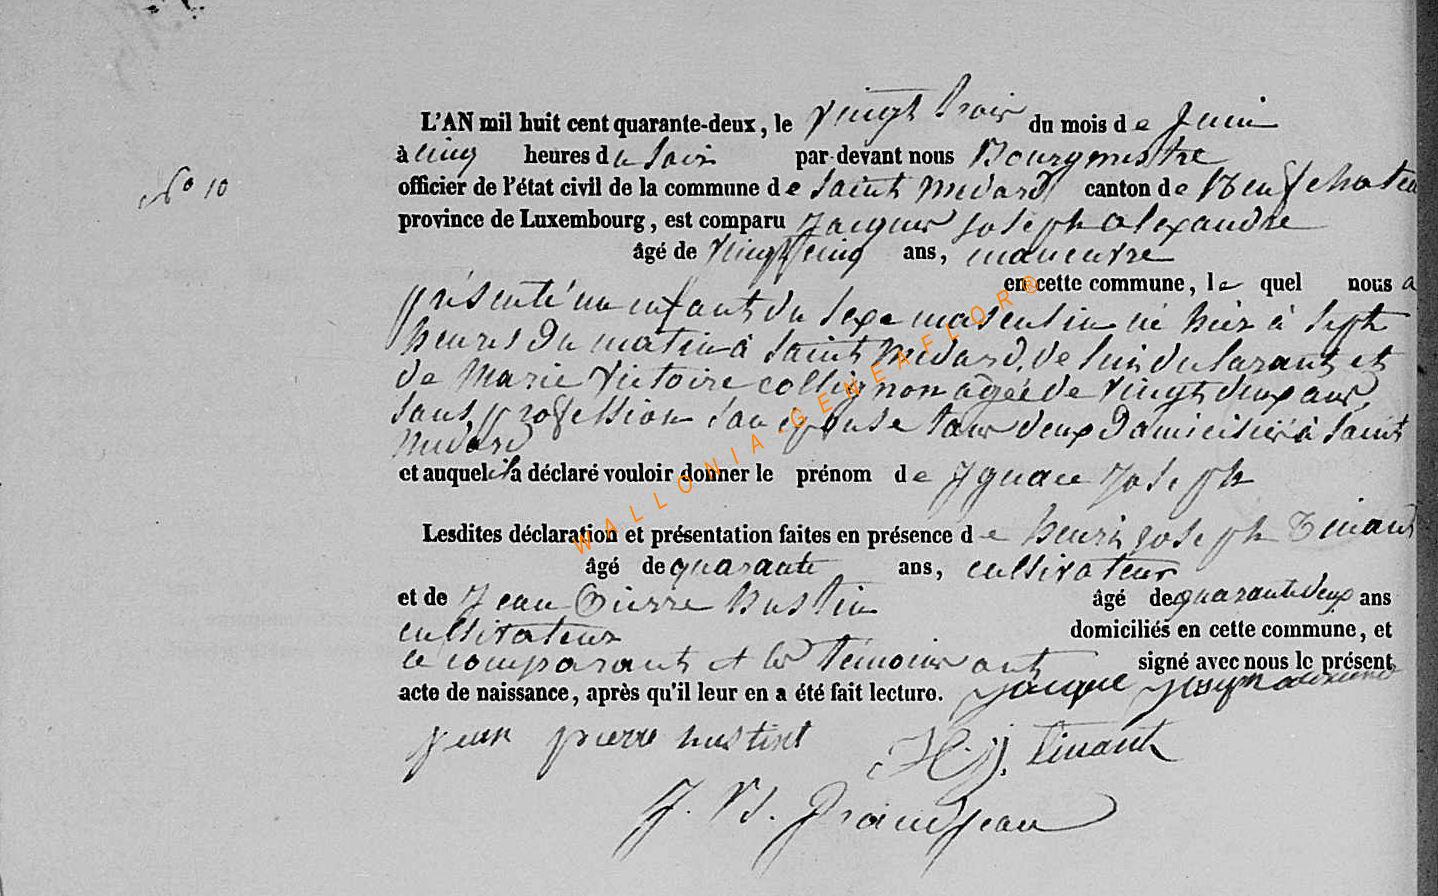 L'AN mil huit cent quarante-deux, le vingt trois du mois de Juin
à cinq heures du Soir par devant nous Bourgmestre
N° 10
officier de l'état civil de la commune de Saint Médard canton de Neufchateau
province de Luxembourg, est comparu Jacques Joseph alexandre
âgé de vingt cinq ans, manœuvre
en cette commune, le quel nous a
présenté un enfant du sexe masculin né hier à sept
heures du matin à Saint Médard, de lui déclarant et
de Marie Victoire collignon agée de vingt deux ans
sans profession son épouse tous deux domiciliés à Saint
Médard
et auquel il a déclaré vouloir donner le prénom de Ignace Joseph
Lesdites déclaration et présentation faites en présence de henri joseph Tinant
âgé de quarante ans, cultivateur
et de Jean Pierre hustin âgé de quarante deux ans
cultivateur domiciliés en cette commune, et
le comparant et les témoins ont signé avec nous le présent
acte de naissance, après qu'il leur en a été fait lecture. Jacque Joseph
jean pierre hustint H. J. Tinant
J. Bt. Grandjean
WALLONIA-GENEAFLOR®